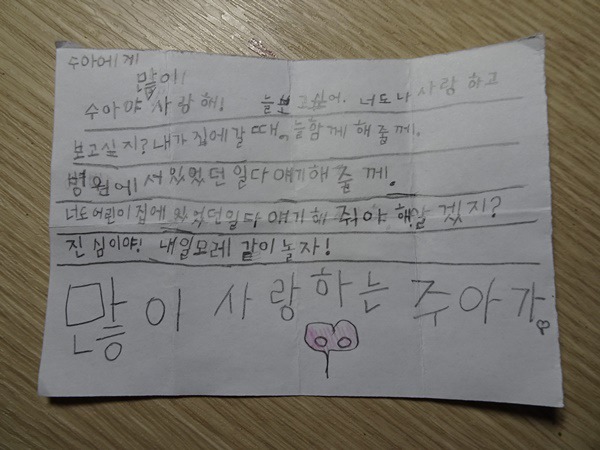 수아에게
많이!
수아야 사랑해! 늘보고싶어. 너도 나 사랑하고
보고싶지? 내가 집에갈때. 늘함께 해줄께.
병원에서 있었던 일 다 얘기해 줄께.
너도 어린이집에 있었던일 다 얘기해 줘야 해! 알겠지?
진심이야! 내일모레 같이 놀자!
많이 사랑하는 주아가